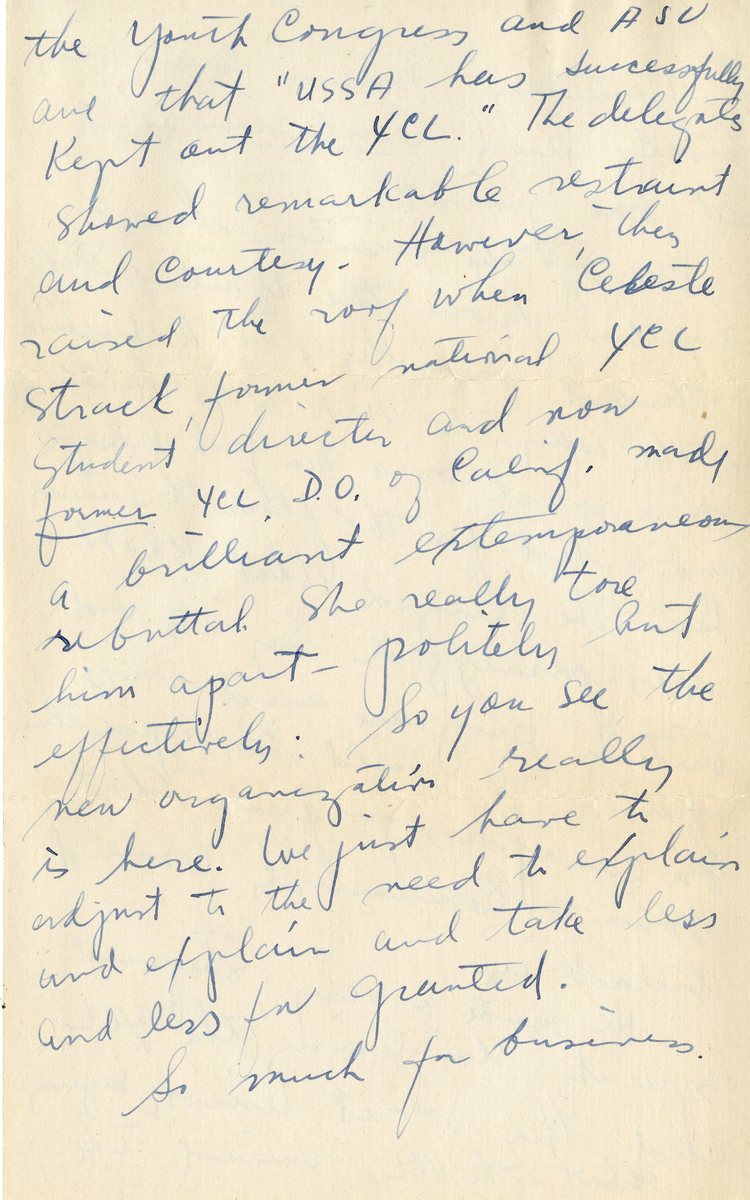 the Youth Congress and ASU
and that "USSA has successfully
kept out the YCL." The delegates
showed remarkable restraint
and courtesy. However, they
raised the roof when Celeste
Strack, former national YCL
Student director and now
former YCL D.O. of Calif. made
a brilliant extemporaneous
rebuttal. She really tore
him apart - politely but
effectively. So you see the
new organization really
is here. We just have to
adjust to the need to explain
and explain and take less
and less for granted.
So much for business.